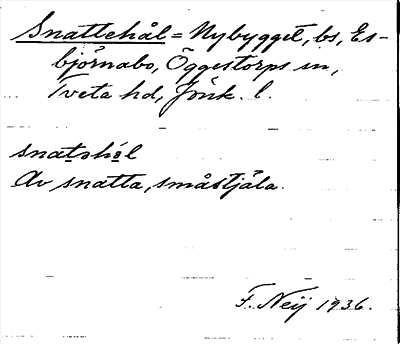 Snattehål = Nybygget, bs, Es-
björnabo, Öggestorps sn,
Tveta hd, Jönk. l.
snatəhól
Av snatta, småstjäla.
F. Neij 1936.